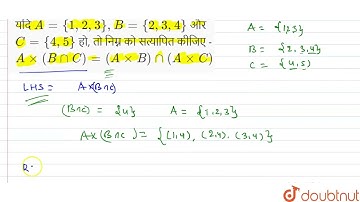 यदि A = {1, 2, 3}, B = {2, 3, 4} और
C = {4, 5} हो, तो निम्न को सत्यापित कीजिए -
A × (B ∩ C) = (A × B) ∩ (A × C)
A = {1,2,3}
B = {2,3,4}
C = {4,5}
LHS = A×(B∩C)
(B∩C) = {4} A = {1,2,3}
A×(B∩C) = {(1,4), (2,4), (3,4)}
R
doubtnut